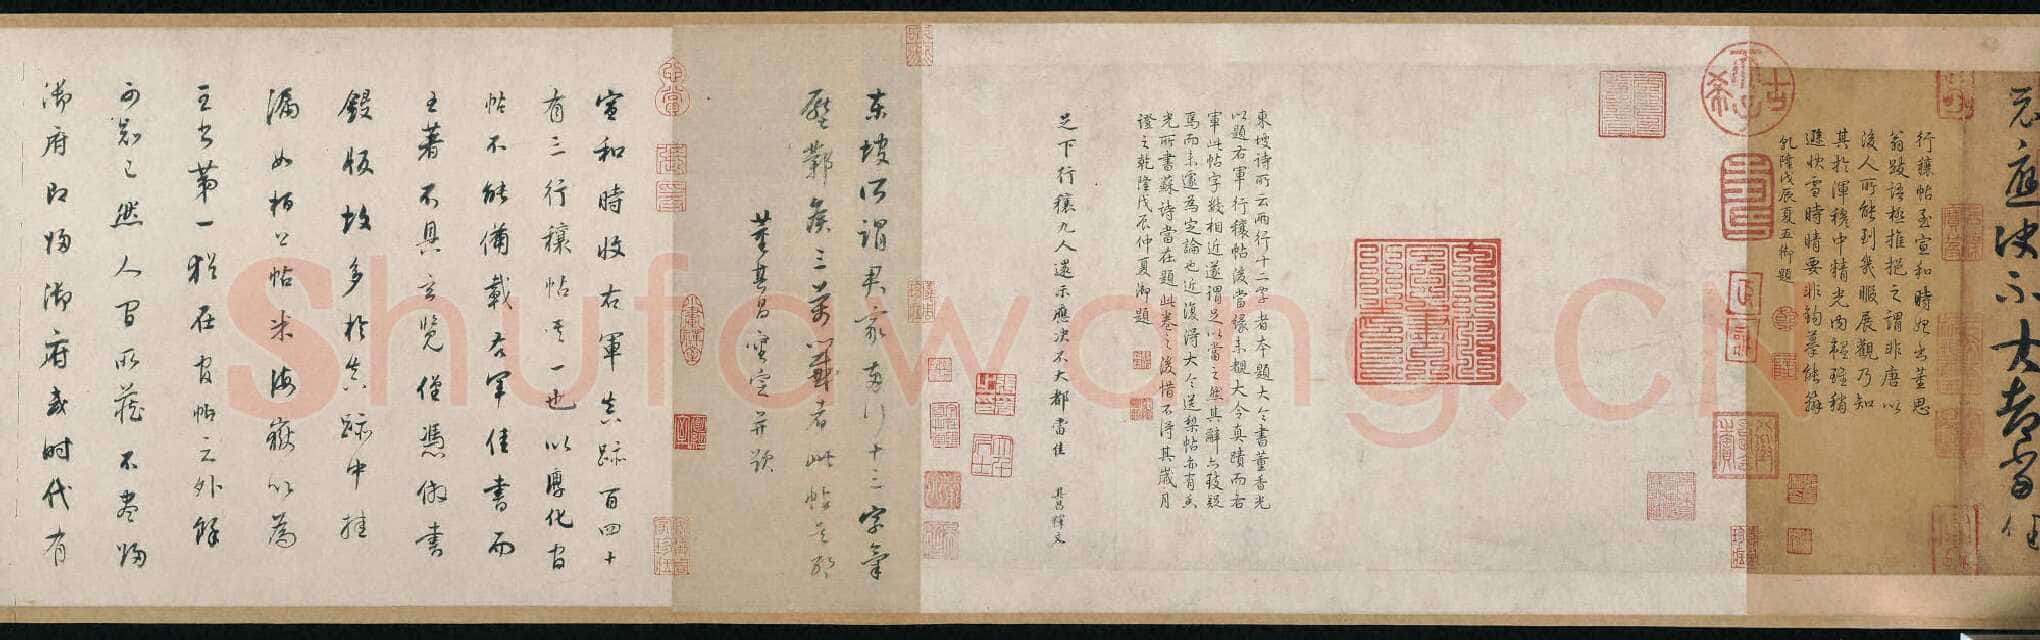 應決不大都當佳
行穰帖至宣和時始出董思
翁跋語極推挹之謂非唐以
後人所能到幾暇展觀乃知
其於渾穆中精光內韞雖稍
遜快雪時晴要非鉤摹能辦
乾隆戊辰夏五御題
東坡詩所云兩行十二字者本題大令書董香光
以題右軍行穰帖後當緣未覩大令真蹟而右
軍此帖字數相近遂謂足以當之然其辭與致頗
焉而未遽為定論也近復得大令送梨帖亦有香
光所書蘇詩當在題此卷之後惜不得其歲月
證之乾隆戊辰仲夏御題
足下行穰九人還示應決不大都當佳 其昌釋文
東坡所謂君家兩行十三字氣
壓鄴侯三萬籤者此帖是耶
董其昌審定并題
宣和時收右軍真跡百四十
有三行穰帖其一也以淳化官
帖不能備載右軍佳書而
王著不具玄覽僅憑倣書
鋟版故多於真跡中挂
漏如桓公帖米海嶽以為
王書第一猶在官帖之外餘
可知已然人間所藏不盡歸
御府即歸御府或時代有
古希天子
Shufawang.CN